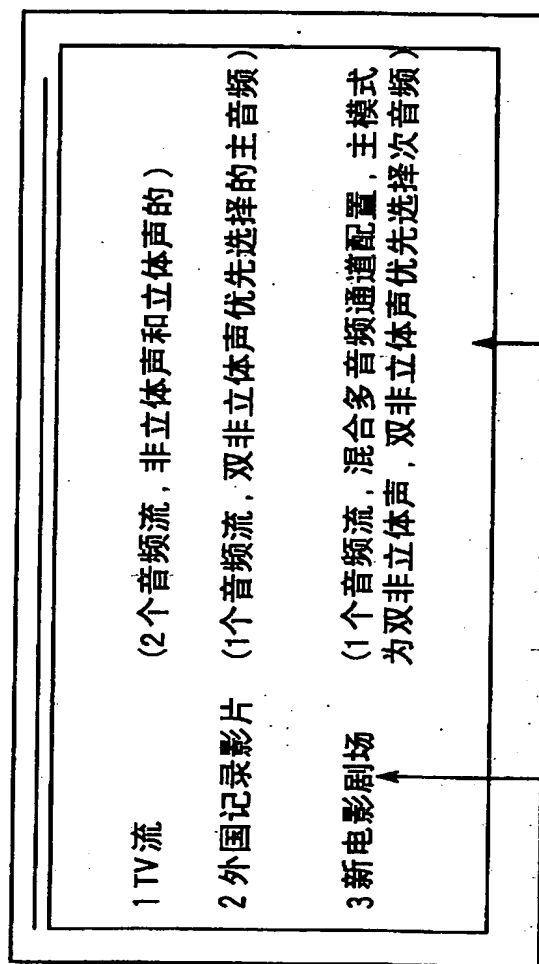 1 TV流 (2个音频流，非立体声和立体声的)
2 外国记录影片 (1个音频流，双非立体声优先选择的主音频)
3 新电影剧场 (1个音频流，混合多音频通道配置，主模式
为双非立体声，双非立体声优先选择次音频)